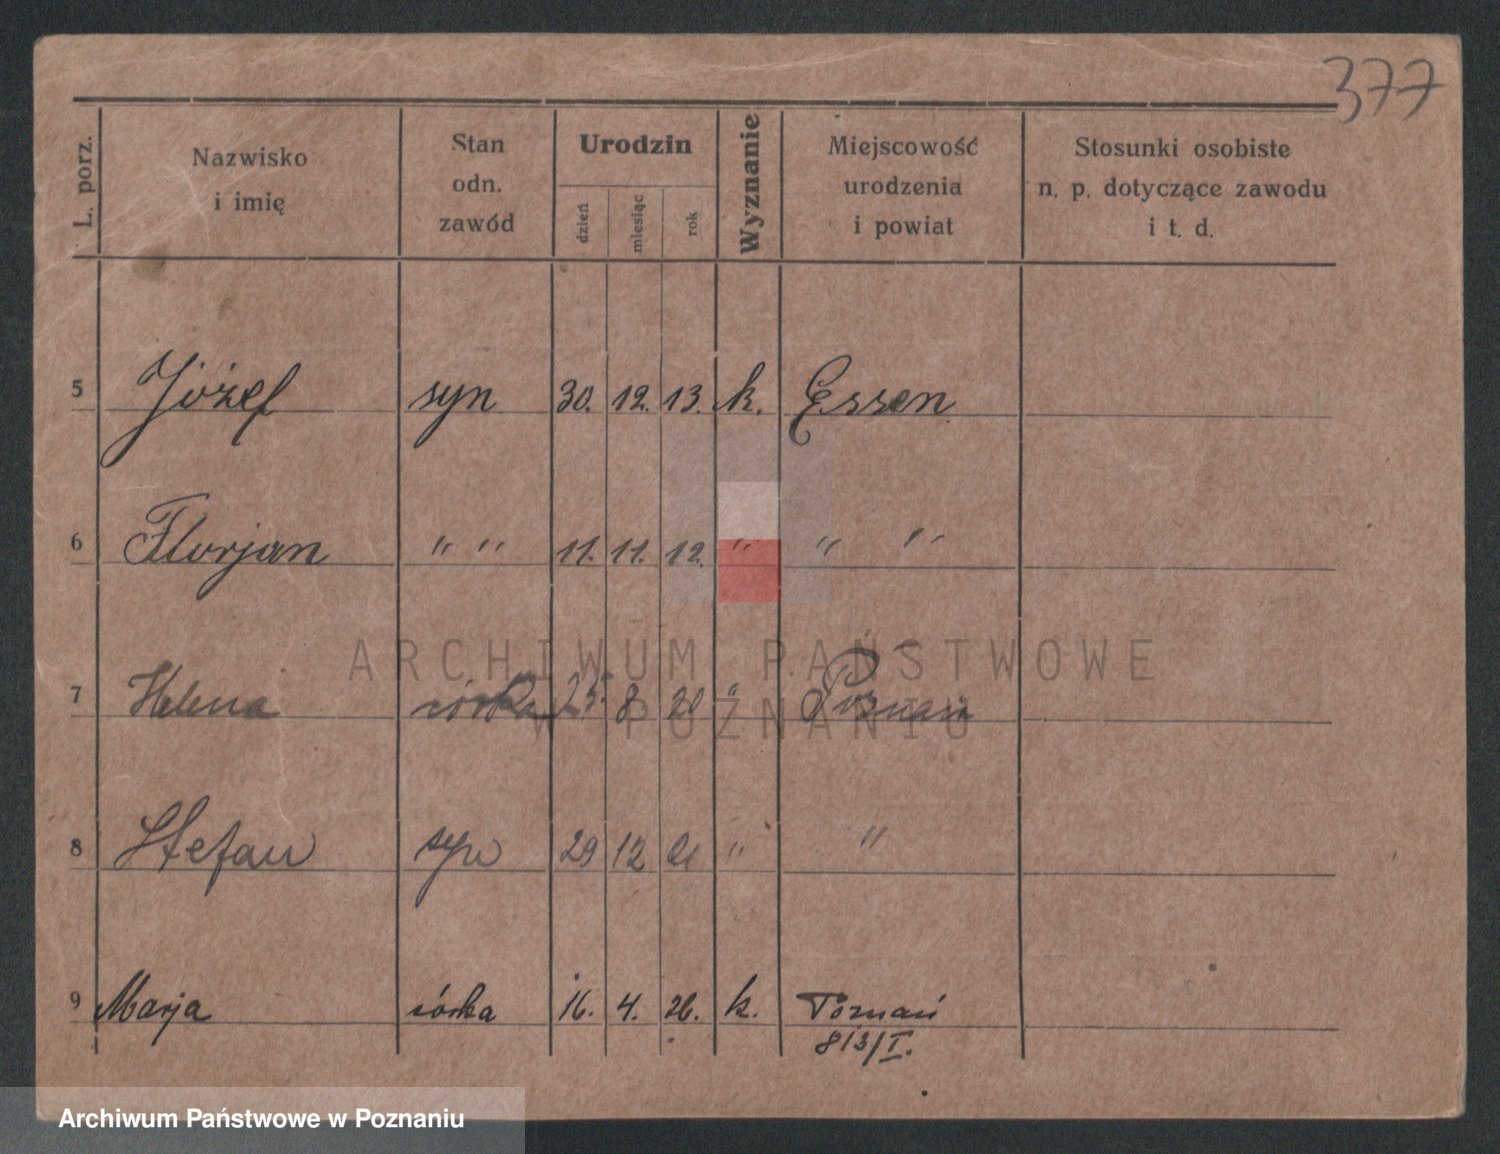 377
L. porz.
Nazwisko
i imię
Stan
odn.
zawód
Urodzin
dzień
miesiąc
rok
Wyznanie
Miejscowość
urodzenia
i powiat
Stosunki osobiste
n. p. dotyczące zawodu
i t. d.
5 Józef syn 30. 12. 13. k. Essen
6 Florjan " " 11. 11. 12. " " "
ARCHIWUM PAŃSTWOWE
7 Helena córka 25. 8 20 " Poznań
W POZNANIU
8 Stefan syn 29 12 21 " "
9 Marja córka 16. 4. 26. k. Poznań
813/I.
Archiwum Państwowe w Poznaniu